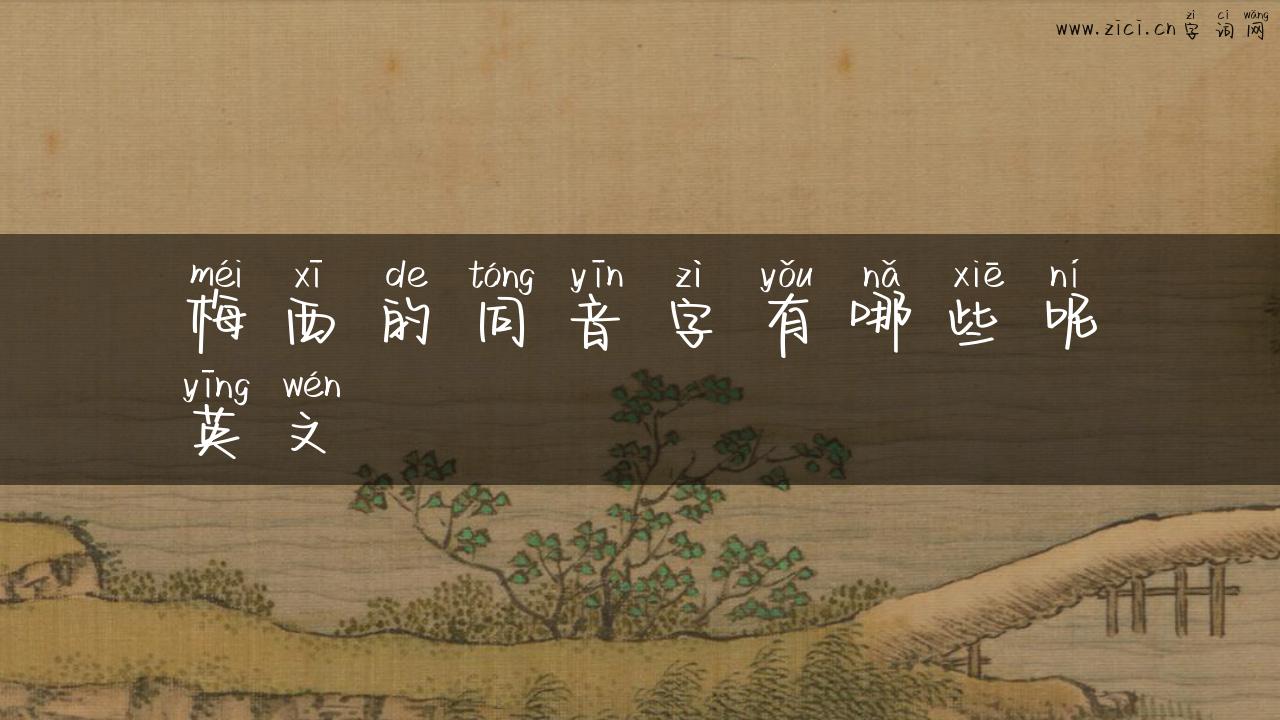 zì cí wǎng
www.zici.cn 字 词 网
méi xī de tóng yīn zì yǒu nǎ xiē ní
梅 西 的 同 音 字 有 哪 些 呢
yīng wén
英 文